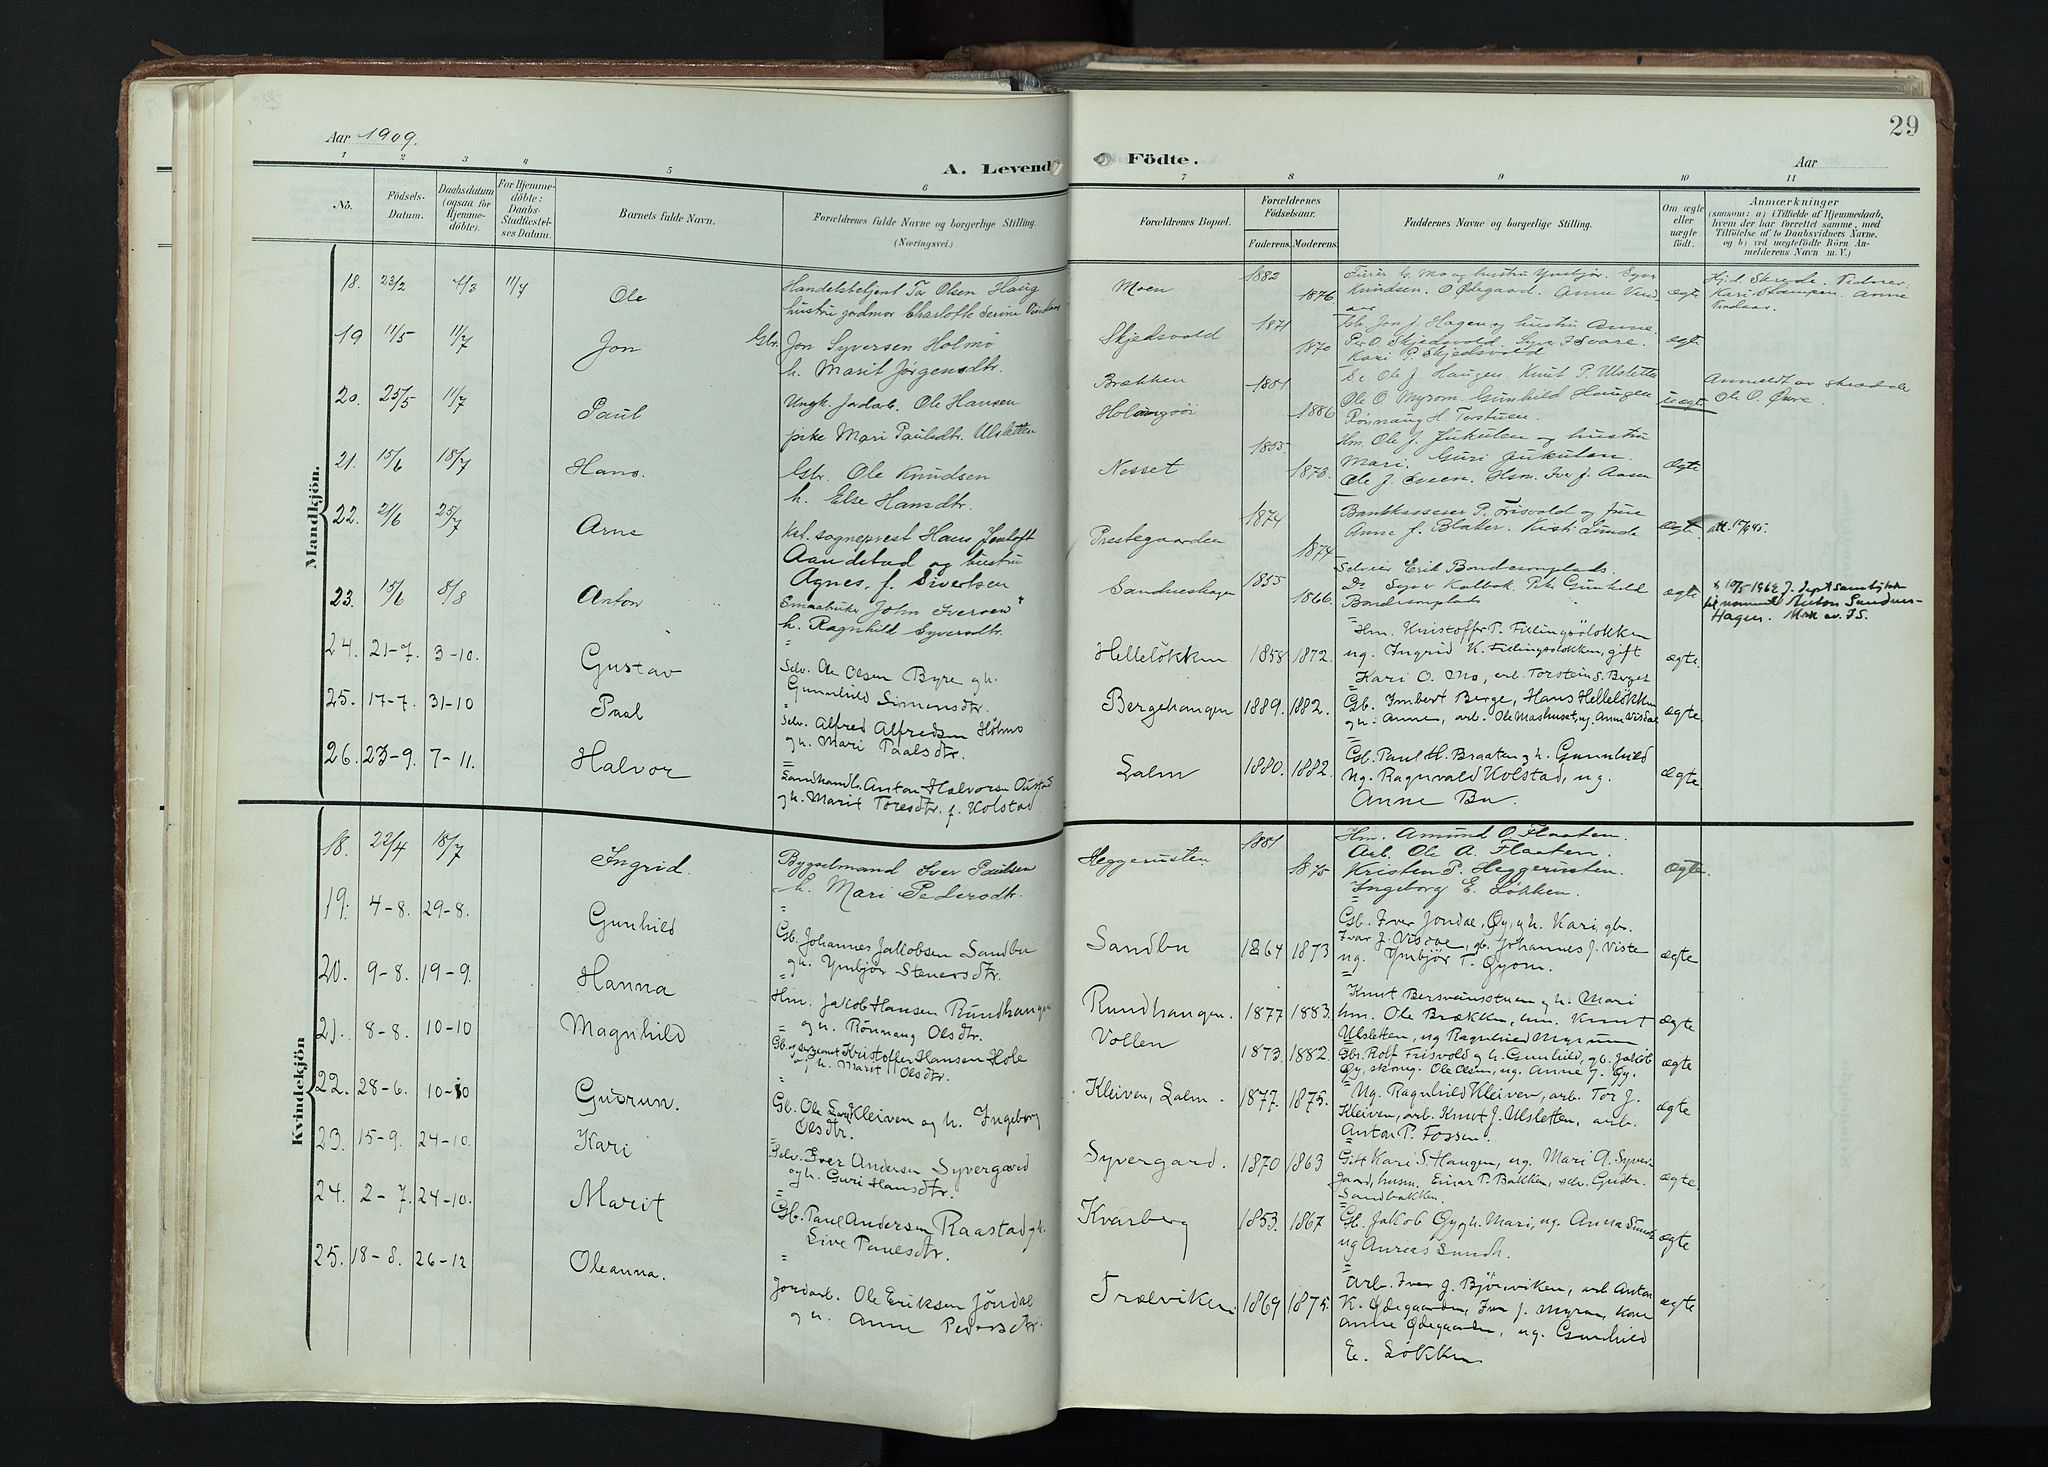 Aar 1909.
A. Levende Födte.
29
Aar
1 2 3 4 5 6 7 8 9 10 11
No. Födsels-Datum. Daabsdatum (ogsaa for Hjemme-döbte). For Hjemme-döbte: Daabs-Stadfæstel-ses Datum. Barnets fulde Navn. Forældrenes fulde Navne og borgerlige Stilling. (Næringsvei.) Forældrenes Bopæl. Forældrenes Födselsaar. Faderens. Moderens. Faddernes Navne og borgerlige Stilling. Om ægte eller uægte födt. Anmærkninger (saasom: a) i Tilfælde af Hjemmedaab, hvem der har forrettet samme, med Tilföielse af to Daabsvidners Navne. og b) ved uægtefödte Börn An-melderens Navn m. V.)
Mandkjön.
18. 23/2 4/3 11/7 Ole
Handelsbetjent Tor Olsen Haug
hustru jordmor Charlotte Serine
Moen 1882 1876
Knudsen. O Ødegaard. Anne
ægte
Kari Stampen. Anne
19 11/5 11/7 Jon
Gbr. Jon Syversen Holmö
h. Marit Jørgensdtr.
Skjedsvold 1871 1870
Gb. Jon J. Hagen og hustru Anne.
Per O. Skjedsvold. Syver J Svare.
Kari P. Skjedsvold
ægte
20. 25/5 11/7 Paul
Ungk. Jordarb. Ole Hansen
pike Mari Paulsdtr. Ulsletten
Brækken 1881 1886
Ole J. Haugen. Knut P. Ulsletten
Ole O. Myrom. Gunhild Haugen
Rönnaug H. Torstuen.
uægte
Anmeldt av
Ole O. Øvre.
21. 15/6 18/7 Hans.
Gbr. Ole Knudsen
h. Else Hansdtr.
Nesset 1855. 1873.
Hm. Ole J. Jukulen og hustru
Mari. Guri Jukulen.
Ole J. Huem. Hsm. Iver J. Aasen
ægte
22. 21/6 25/7 Arne
Kst. sogneprest Hans Jenloft
Aandstad og hustru
Agnes, f. Sivertsen
Prestegaarden 1874 1874
Bankkasserer P. Frisvold og frue
Anne f. Blaker. Kirsti Lunde
ægte
23. 15/6 8/8 Anton
Smaabruker John Iversen
h. Ragnhild Syversdtr.
Sandneshagen 1855 1866.
Selveier Erik Bondesonplads
Ds Syver Kolbok. Pk Gunhild
Bondesonplads
ægte
Anton Sandnes-
Hagen.
24. 21-7. 3-10. Gustav
Selv. Ole Olsen Byre og h.
Gunnhild Simensdtr.
Helleløkken 1858 1872.
Hm. Kristoffer P. Fillingsøløkken
ug. Ingrid K. Fillingsøløkken, gift
Kari O. Mo, arb. Torstein S. Berget
ægte
25. 17-7. 31-10 Paal
Selv. Alfred Alfredsen Holmo
og h. Mari Paalsdtr.
Bergehaugen 1889. 1882.
Gb. Imbert Berge, Hans Helleløkken
og h. Anne, arb. Ole Mashuset, ug. Anne Visdal
ægte
26. 23-9. 7-11. Halvor
Landhandl. Anton Halvorsen Oustad
og h. Marit Toresdtr. f. Kolstad
Lalm 1880. 1882.
Gb. Paul H. Braaten og h. Gunnhild
Ug. Ragnvald Kolstad, ug.
Anne Bu.
ægte
Kvindekjön
18. 22/4 18/7 Ingrid.
Bygselmand Iver Paulsen
h. Mari Pedersdtr.
Heggerusten 1881 1875
Hm. Amund O. Flaaten.
Arb. Ole A. Flaaten.
Kristen P. Heggerusten.
Ingeborg E. Løkken.
ægte.
19. 4-8. 29-8. Gunhild
Gb. Johannes Jakobsen Sandbu
og h. Ymbjør Stenersdtr.
Sandbu 1864 1873
Gb. Iver Jøndal, Øy, og h. Kari, gbr.
Ivar J. Visdal, gb. Johannes J. Viste
ug. Ymbjør T. Øyom.
ægte
20. 9-8. 19-9. Hanna
Hm. Jakob Hansen Rundhaugen
og h. Rønnaug Olsdtr.
Rundhaugen. 1877 1883.
Knut Bersveinsstuen og h. Mari
hm. Ole Brækken, hm. Knut
Ulsletten, ug Ragnhild Myrum
ægte
21. 8-8. 10-10 Magnhild
Gb. og sergeant Kristoffer Hansen Hole
og h. Marit Olsdtr.
Vollen 1873. 1882.
Gbr. Rolf Frisvold og h. Gunhild, gb. Jakob
Øy, skoug. Ole Olsen, ug. Anne J. Øy.
ægte
22. 28-6. 10-10 Gudrun.
Gb. Ole Kleiven og h. Ingeborg
Olsdtr.
Kleiven, Lalm. 1877. 1875.
Ug. Ragnhild Kleiven, arb. Tor J.
Kleiven, arb. Knut J. Ulsletten, arb.
Anton P. Fossen.
ægte
23. 15-9. 24-10. Kari
Selv. Iver Andersen Syvergard
og h. Guri Hansdtr.
Syvergard. 1870 1863
Gift Kari S. Haugen, ug. Mari A. Syver-
gaard, husm. Einar P. Bakken, selv. Gudbr.
Sandbakken.
ægte.
24. 2-7. 24-10. Marit
Gb. Paul Andersen Raastad og h.
Live Paulsdtr.
Kvarberg 1853. 1867
Gb. Jakob Øy og h. Mari, ug. Anna Sundh.
ug Andreas Sundh.
ægte
25. 18-8. 26-12 Oleanna.
Jordarb. Ole Eriksen Jøndal
og h. Anne Pedersdtr.
Trælviken 1869 1875.
Arb. Iver J. Bjørnviken, arb Anton
K. Ødegaarden, Iver J. Myrum, kone
Anne Ødegaarden, ug. Gunhild
E. Løkken
ægte